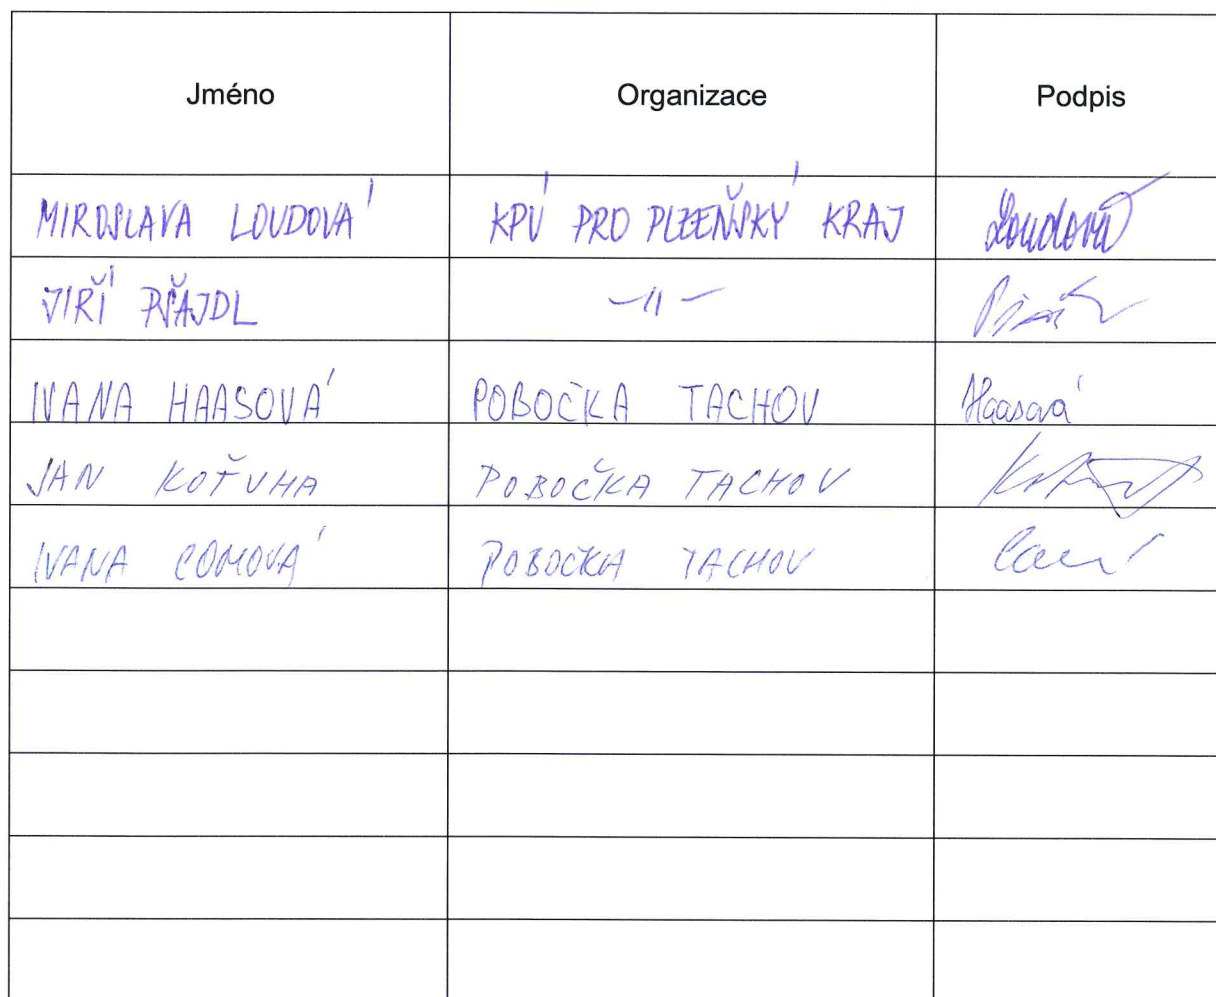 Jméno Organizace Podpis
MIROSLAVA LOUDOVÁ KPÚ PRO PLZEŇSKÝ KRAJ Loudová
JIŘÍ PŠAJDL —11—
IVANA HAASOVÁ POBOČKA TACHOV Haasová
JAN KOŤUHA POBOČKA TACHOV
IVANA COMOVÁ POBOČKA TACHOV